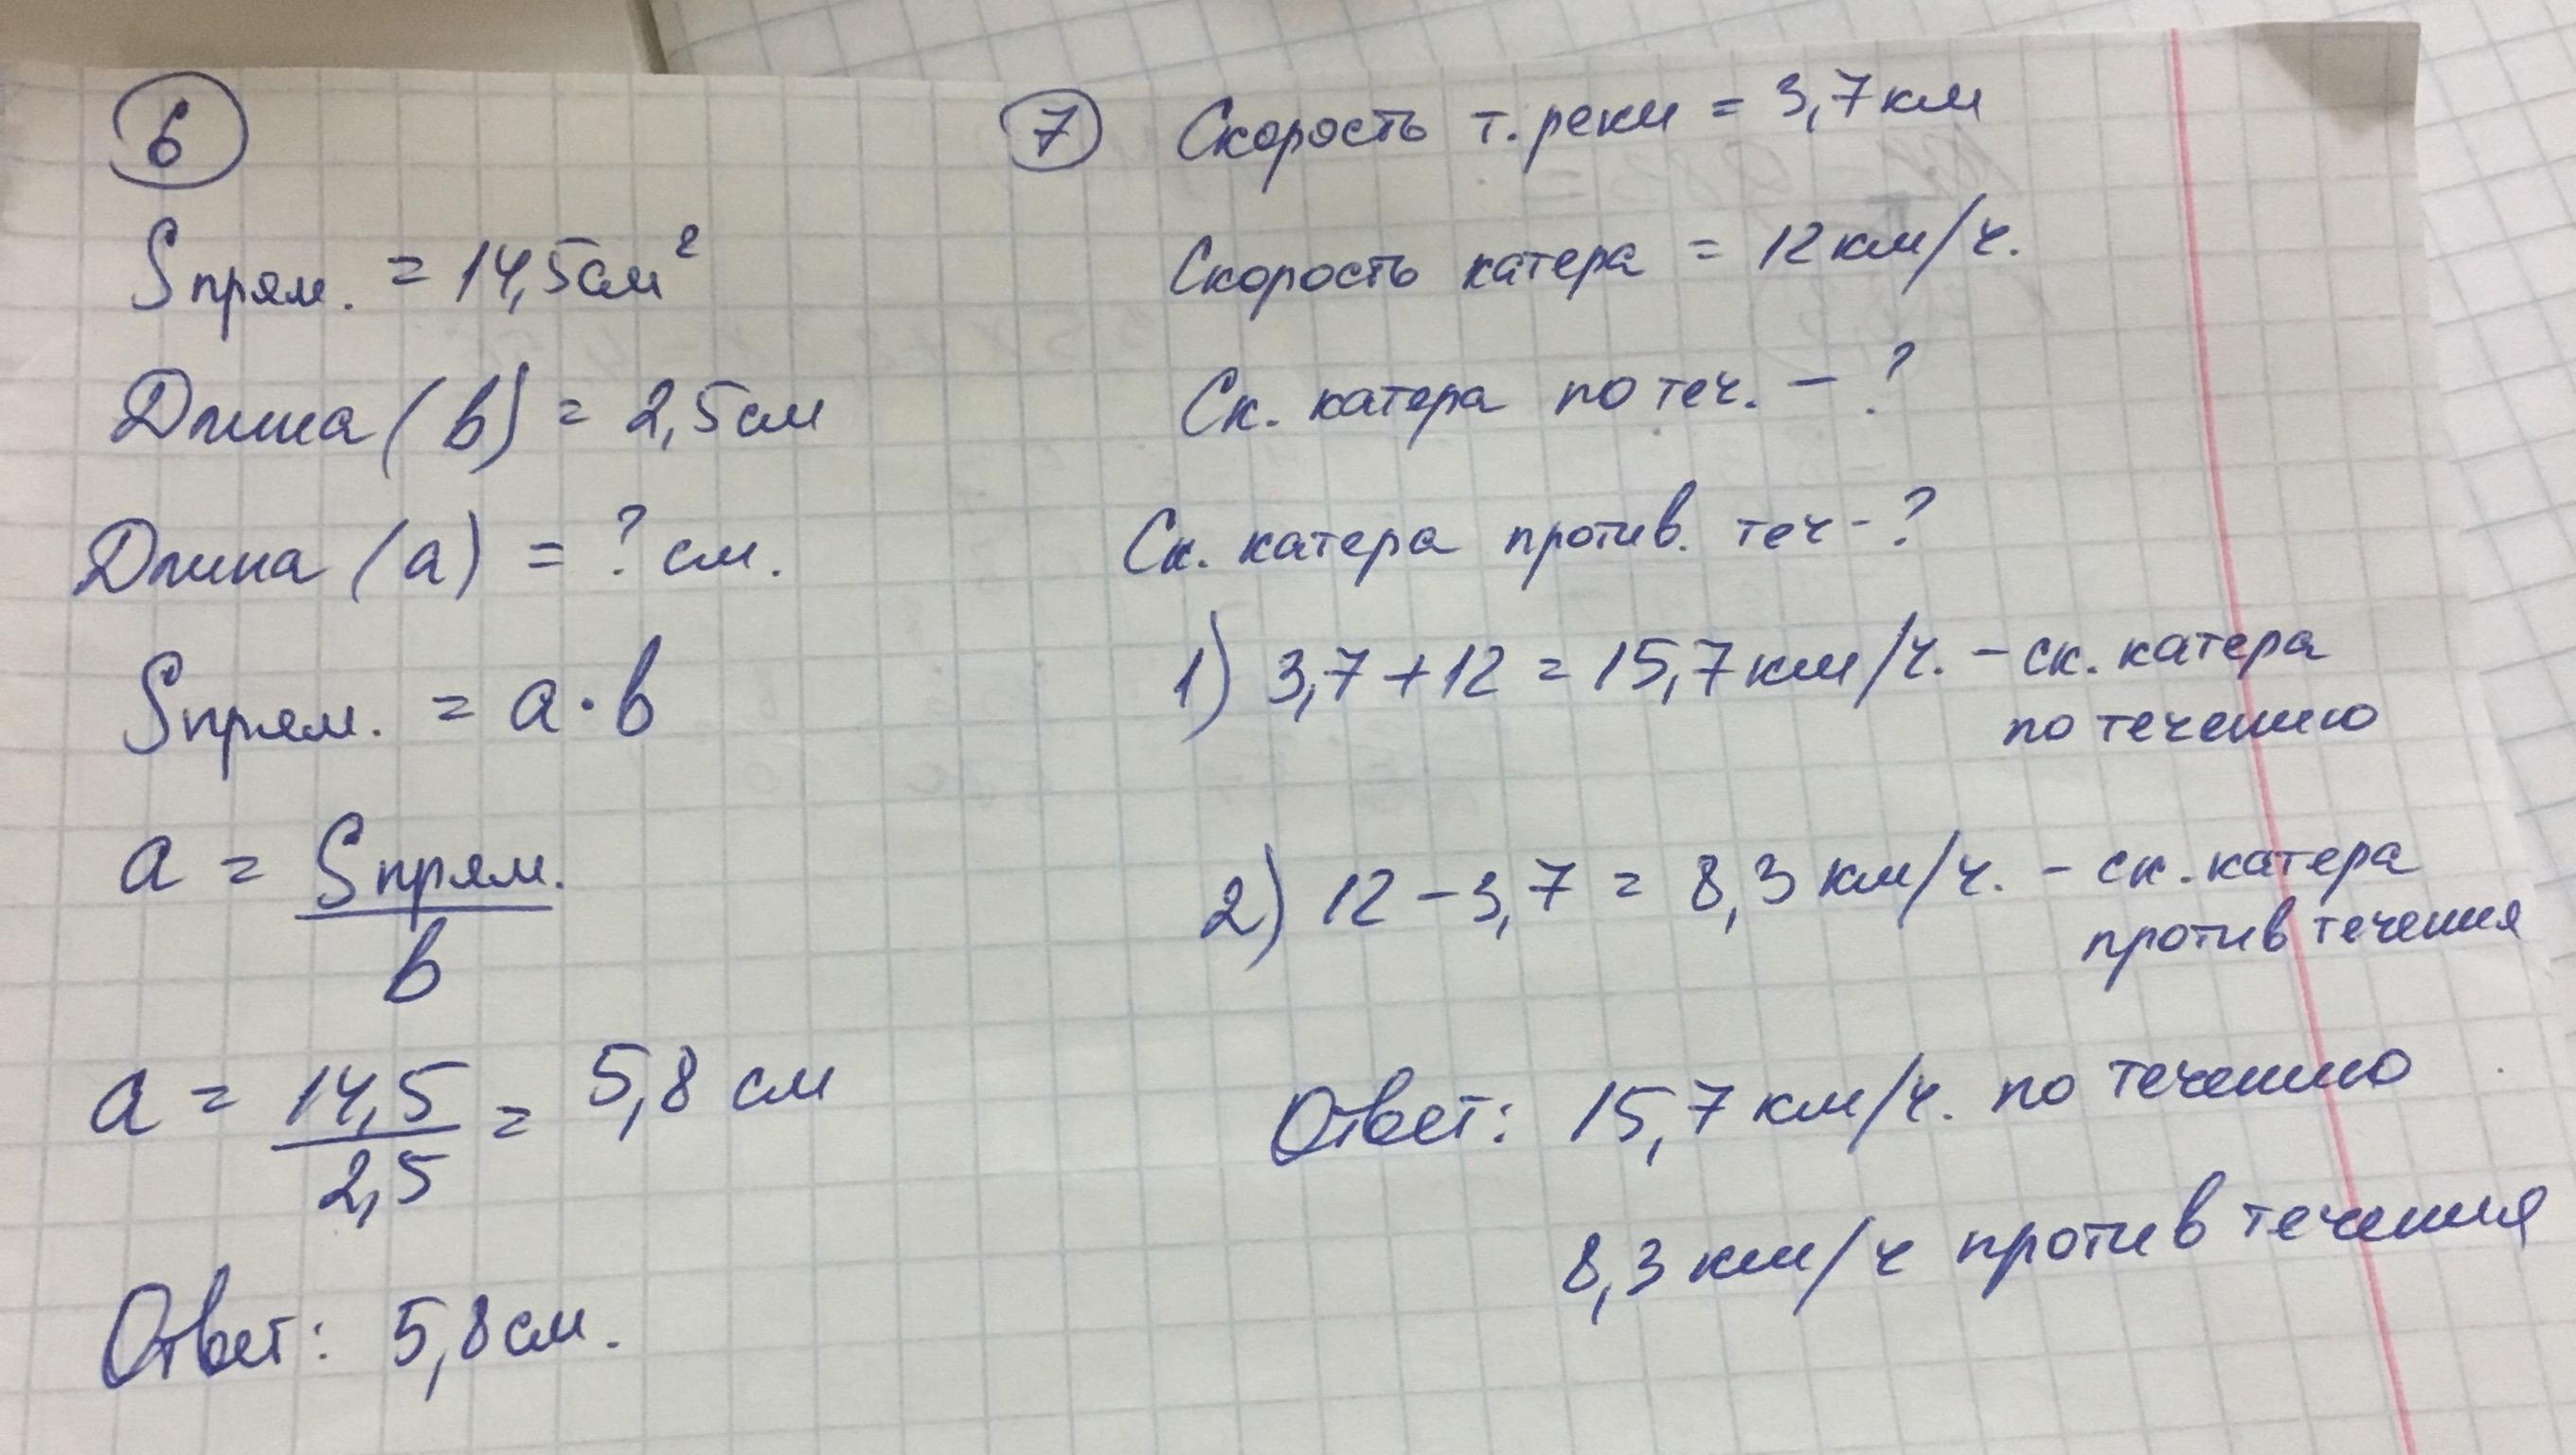 6
Sпрям. = 14,5см²
Длина (b) = 2,5см
Длина (a) = ? см.
Sпрям. = a · b
a = Sпрям.
b
a = 14,5 = 5,8 см
2,5
Ответ: 5,8см.
7 Скорость т. реки = 3,7км
Скорость катера = 12км/ч.
Ск. катера по теч. – ?
Ск. катера против. теч - ?
1) 3,7 + 12 = 15,7км/ч. – ск. катера
по течению
2) 12 – 3,7 = 8,3 км/ч. – ск. катера
против течения
Ответ: 15,7км/ч. по течению
8,3км/ч против течения